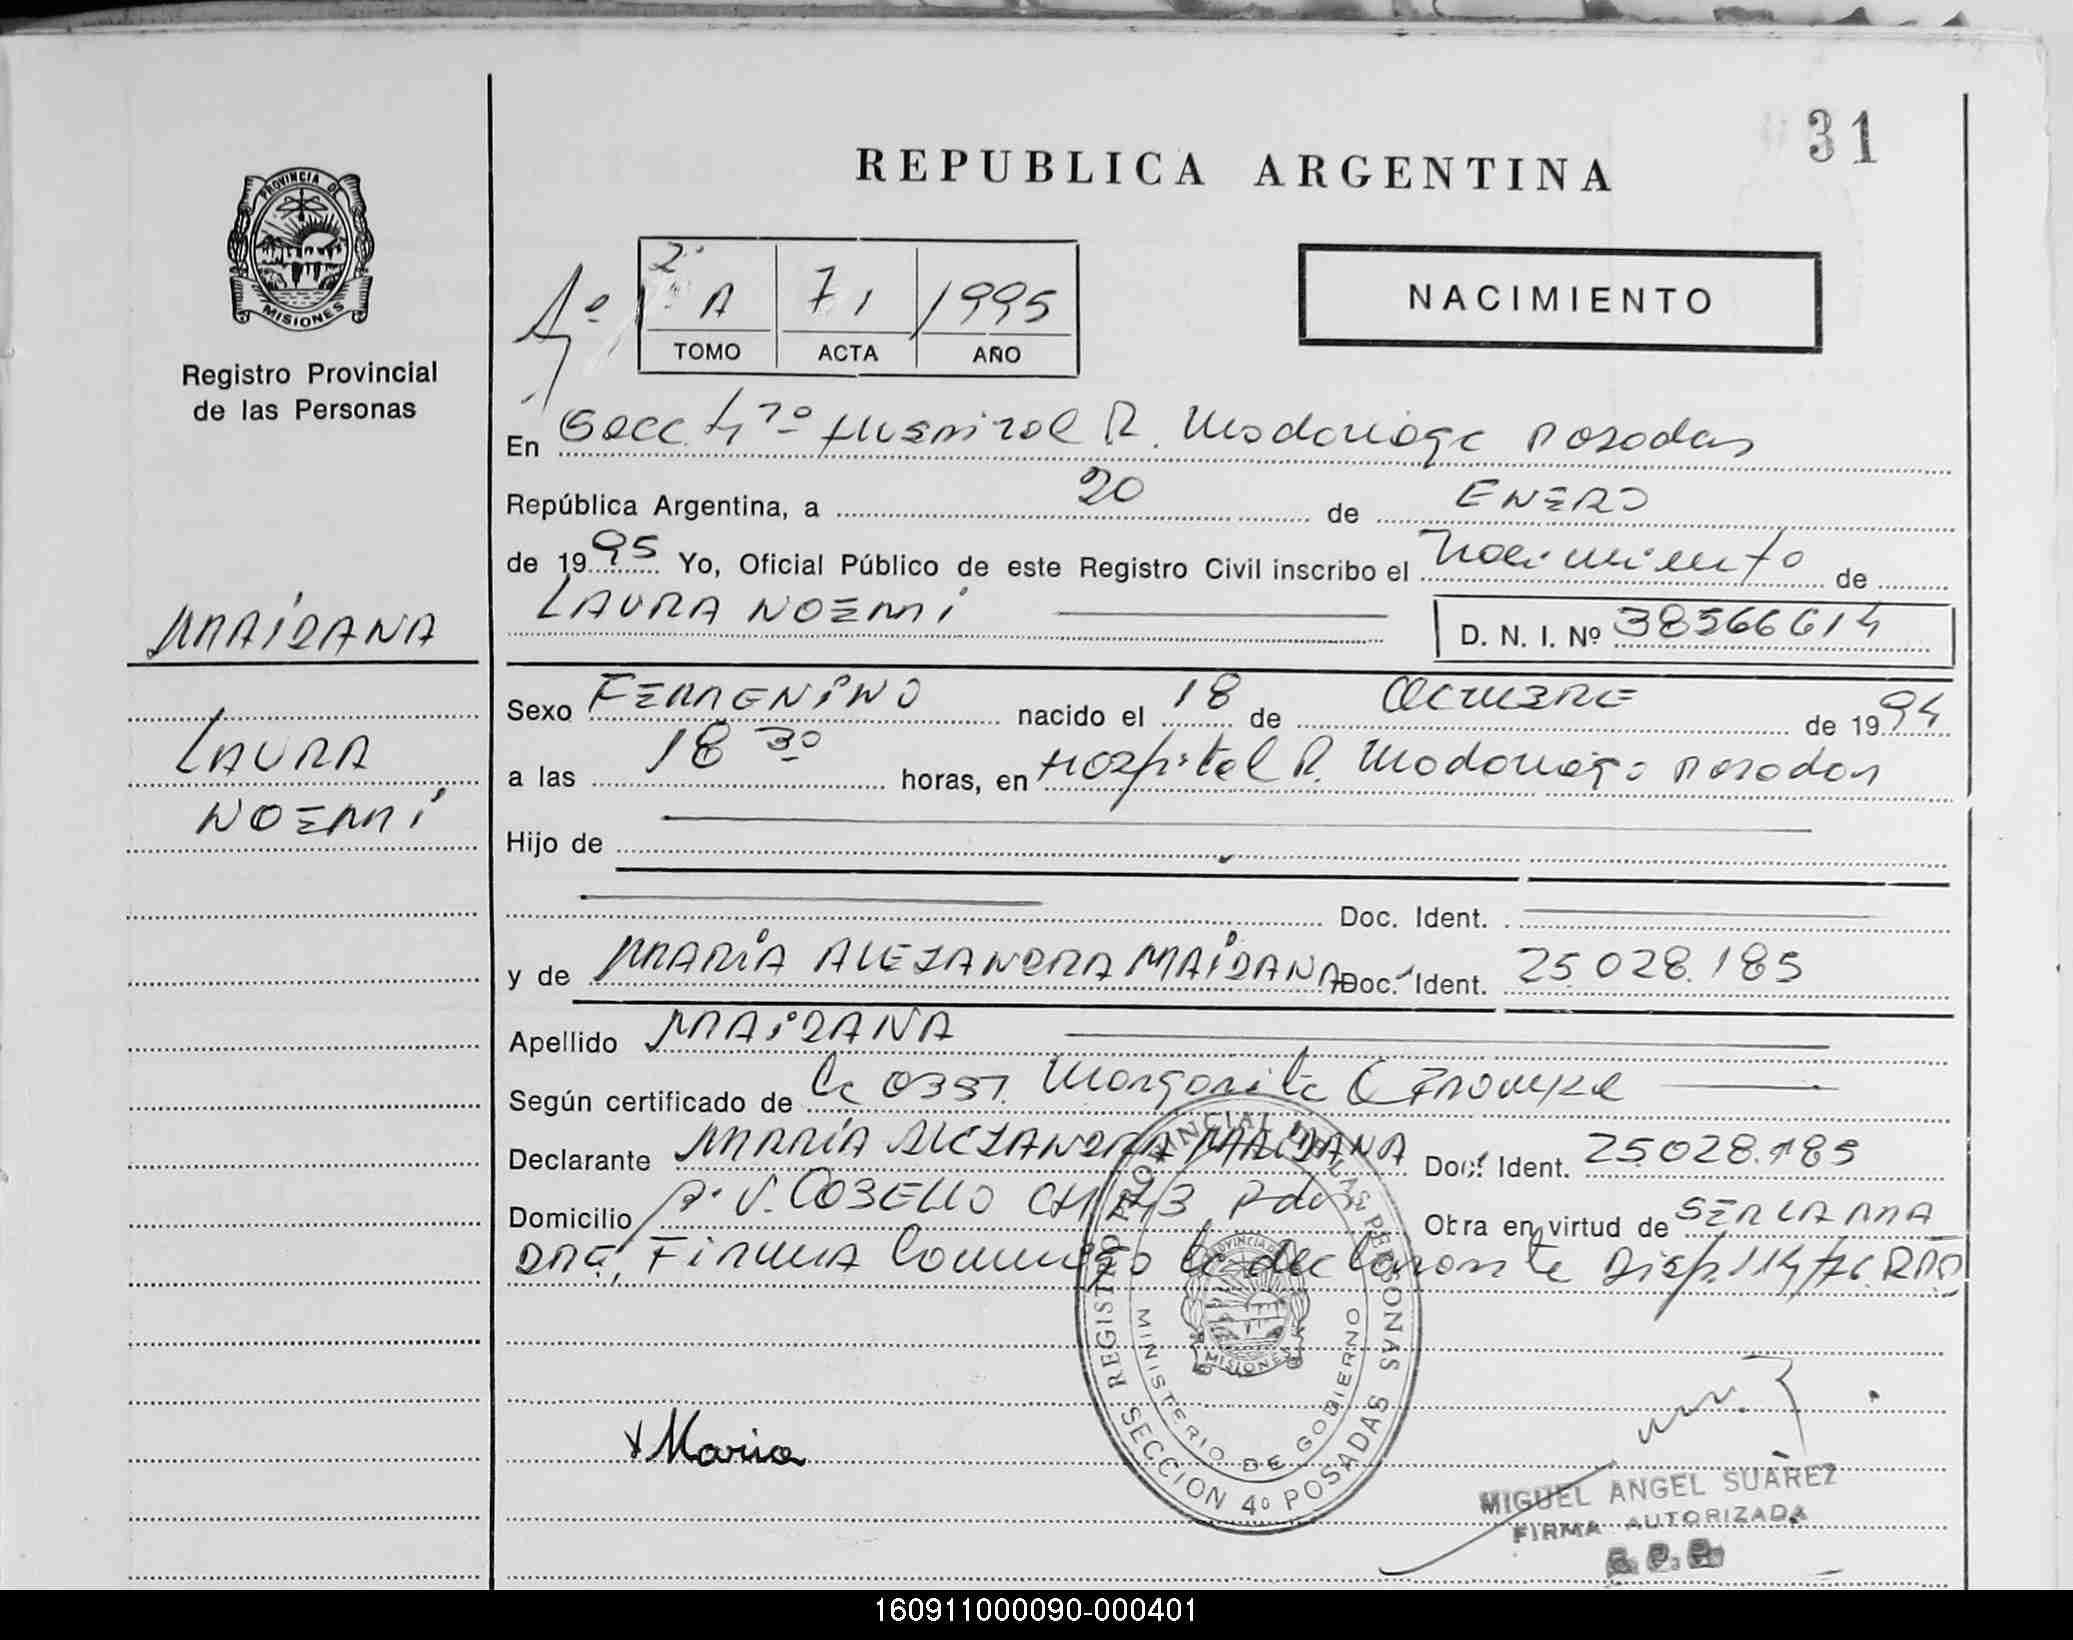 31
REPUBLICA ARGENTINA
PROVINCIA DE
MISIONES
Registro Provincial
de las Personas
2º A 71 1995
TOMO ACTA AÑO
NACIMIENTO
En Secc. 4ta Hospital R. Madariaga Posadas
República Argentina, a 20 de ENERO
de 1995 Yo, Oficial Público de este Registro Civil inscribo el Nacimiento de
LAURA NOEMI D. N. I. Nº 38566614
MAIDANA
LAURA
NOEMI
Sexo FEMENINO nacido el 18 de OCTUBRE de 1994
a las 18 30 horas, en Hospital R. Madariaga Posadas
Hijo de
Doc. Ident.
y de MARIA ALEJANDRA MAIDANA Doc. Ident. 25.028.185
Apellido MAIDANA
Según certificado de la Obst. Margarita
Declarante MARIA ALEJANDRA MAIDANA Doc. Ident. 25.028.185
Domicilio COBELLO CH 43 Pdas Obra en virtud de SER LA MA
DRE, FIRMA Conmigo la declarante Disp. 114/76. RPP
REGISTRO PROVINCIAL DE LAS PERSONAS
PROVINCIA DE
MISIONES
MINISTERIO DE GOBIERNO
SECCION 4º POSADAS
Maria
MIGUEL ANGEL SUAREZ
FIRMA AUTORIZADA
160911000090-000401